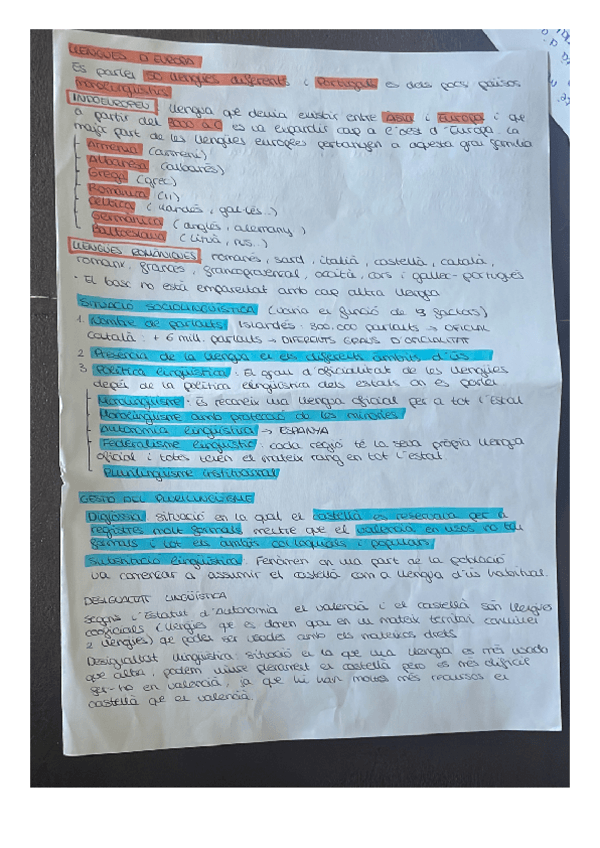 LLENGUES D'EUROPA
Es parlen 50 llengües diferents i Portugal es dels pocs països
monolingüistics
INDOEUROPEU llengua que devia existir entre Àsia i Europa i que
a partir del 3000 a.C es va expandir cap a l'oest d'Europa. La
major part de les llengües europées pertanyen a aquesta gran família
Armènia (armeni)
Albanesa (albanés)
Grega (grec)
Romànica (11)
Cèltica (irlandés, gal·lés..)
Germànica (anglés, alemany)
Baltoeslava (lituà, rus..)
LLENGÜES ROMÀNIQUES romanés, sard, italià, castellà, català,
romanx, francés, francoprovençal, occità, cors i gallec-portugués
· El basc no està emparedat amb cap altra llengua
SITUACIÓ SOCIOLINGÜÍSTICA (varia en funció de 3 factors)
1. Nombre de parlants Islandés: 300.000 parlants → OFICIAL
català: + 6 mill. parlants → DIFERENTS GRAUS D'OFICIALITAT
2 Presència de la llengua en els diferents àmbits d'ús
3 Política lingüística: El grau d'oficialitat de les llengües
depén de la política lingüística dels estats on es parlen
Monolingüisme: Es reconeix una llengua oficial per a tot l'Estat
Monolingüisme amb protecció de les minories
Autonomia lingüística → ESPANYA
Federalisme lingüístic: cada regió té la seva pròpia llengua
oficial i totes tenen el mateix rang en tot l'estat
Plurilingüisme institucional
GESTIÓ DEL PLURILINGÜISME
Diglòssia: situació en la qual el castellà es reservava per a
registres molt formals mentre que el valencià en usos no tan
formals i tot els àmbits col·loquials i populars.
Substitució lingüística: Fenòmen on una part de la població
va començar a assumir el castellà com a llengua d'ús habitual.
DESIGUALTAT LINGÜÍSTICA
Segons l'Estatut d'Autonomia el valencià i el castellà són llengües
cooficials (llengües que es donen quan en un mateix territori conviuen
2 llengües) que poden ser usades amb els mateixos drets
Desigualtat lingüística: situació en la que una llengua es més usada
que altra, podem viure plenament en castellà pero es més difícil
fer-ho en valencià, ja que hi han moltes més recursos en
castellà que en valencià.